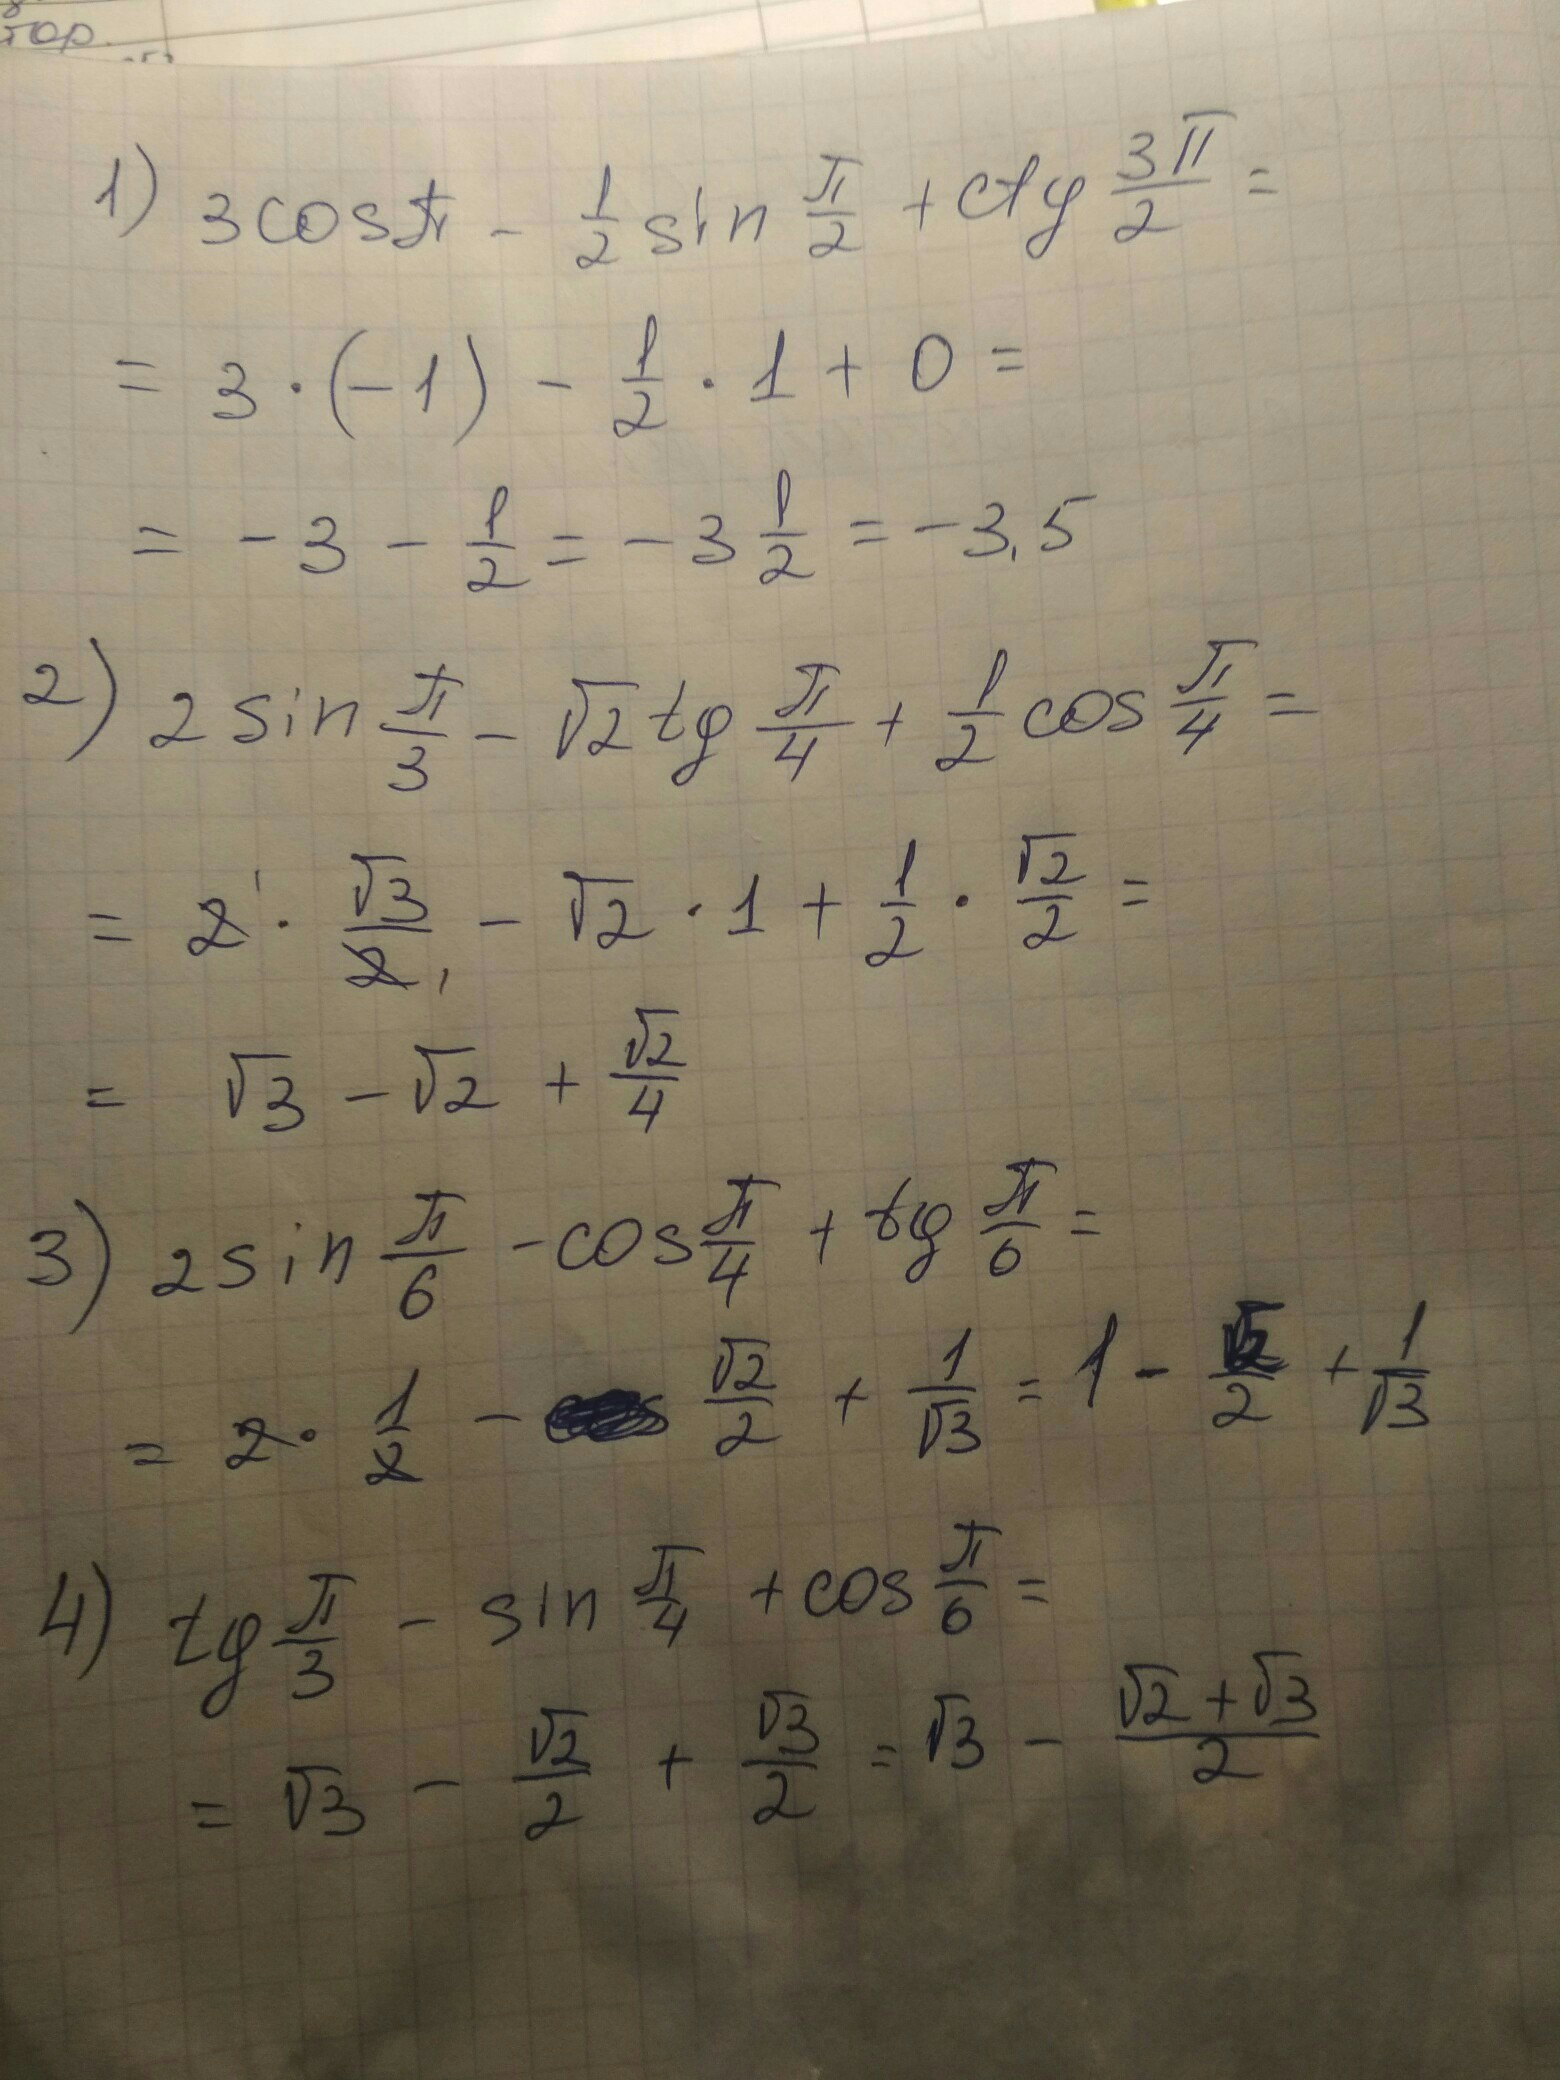 тор.
1) 3cosπ - 1/2 sin π/2 + ctg 3π/2 =
= 3 · (-1) - 1/2 · 1 + 0 =
= -3 - 1/2 = -3 1/2 = -3,5
2) 2 sin π/3 - √2 tg π/4 + 1/2 cos π/4 =
= 2 · √3/2 - √2 · 1 + 1/2 · √2/2 =
= √3 - √2 + √2/4
3) 2 sin π/6 - cos π/4 + tg π/6 =
= 2 · 1/2 - √2/2 + 1/√3 = 1 - √2/2 + 1/√3
4) tg π/3 - sin π/4 + cos π/6 =
= √3 - √2/2 + √3/2 = √3 - (√2+√3)/2